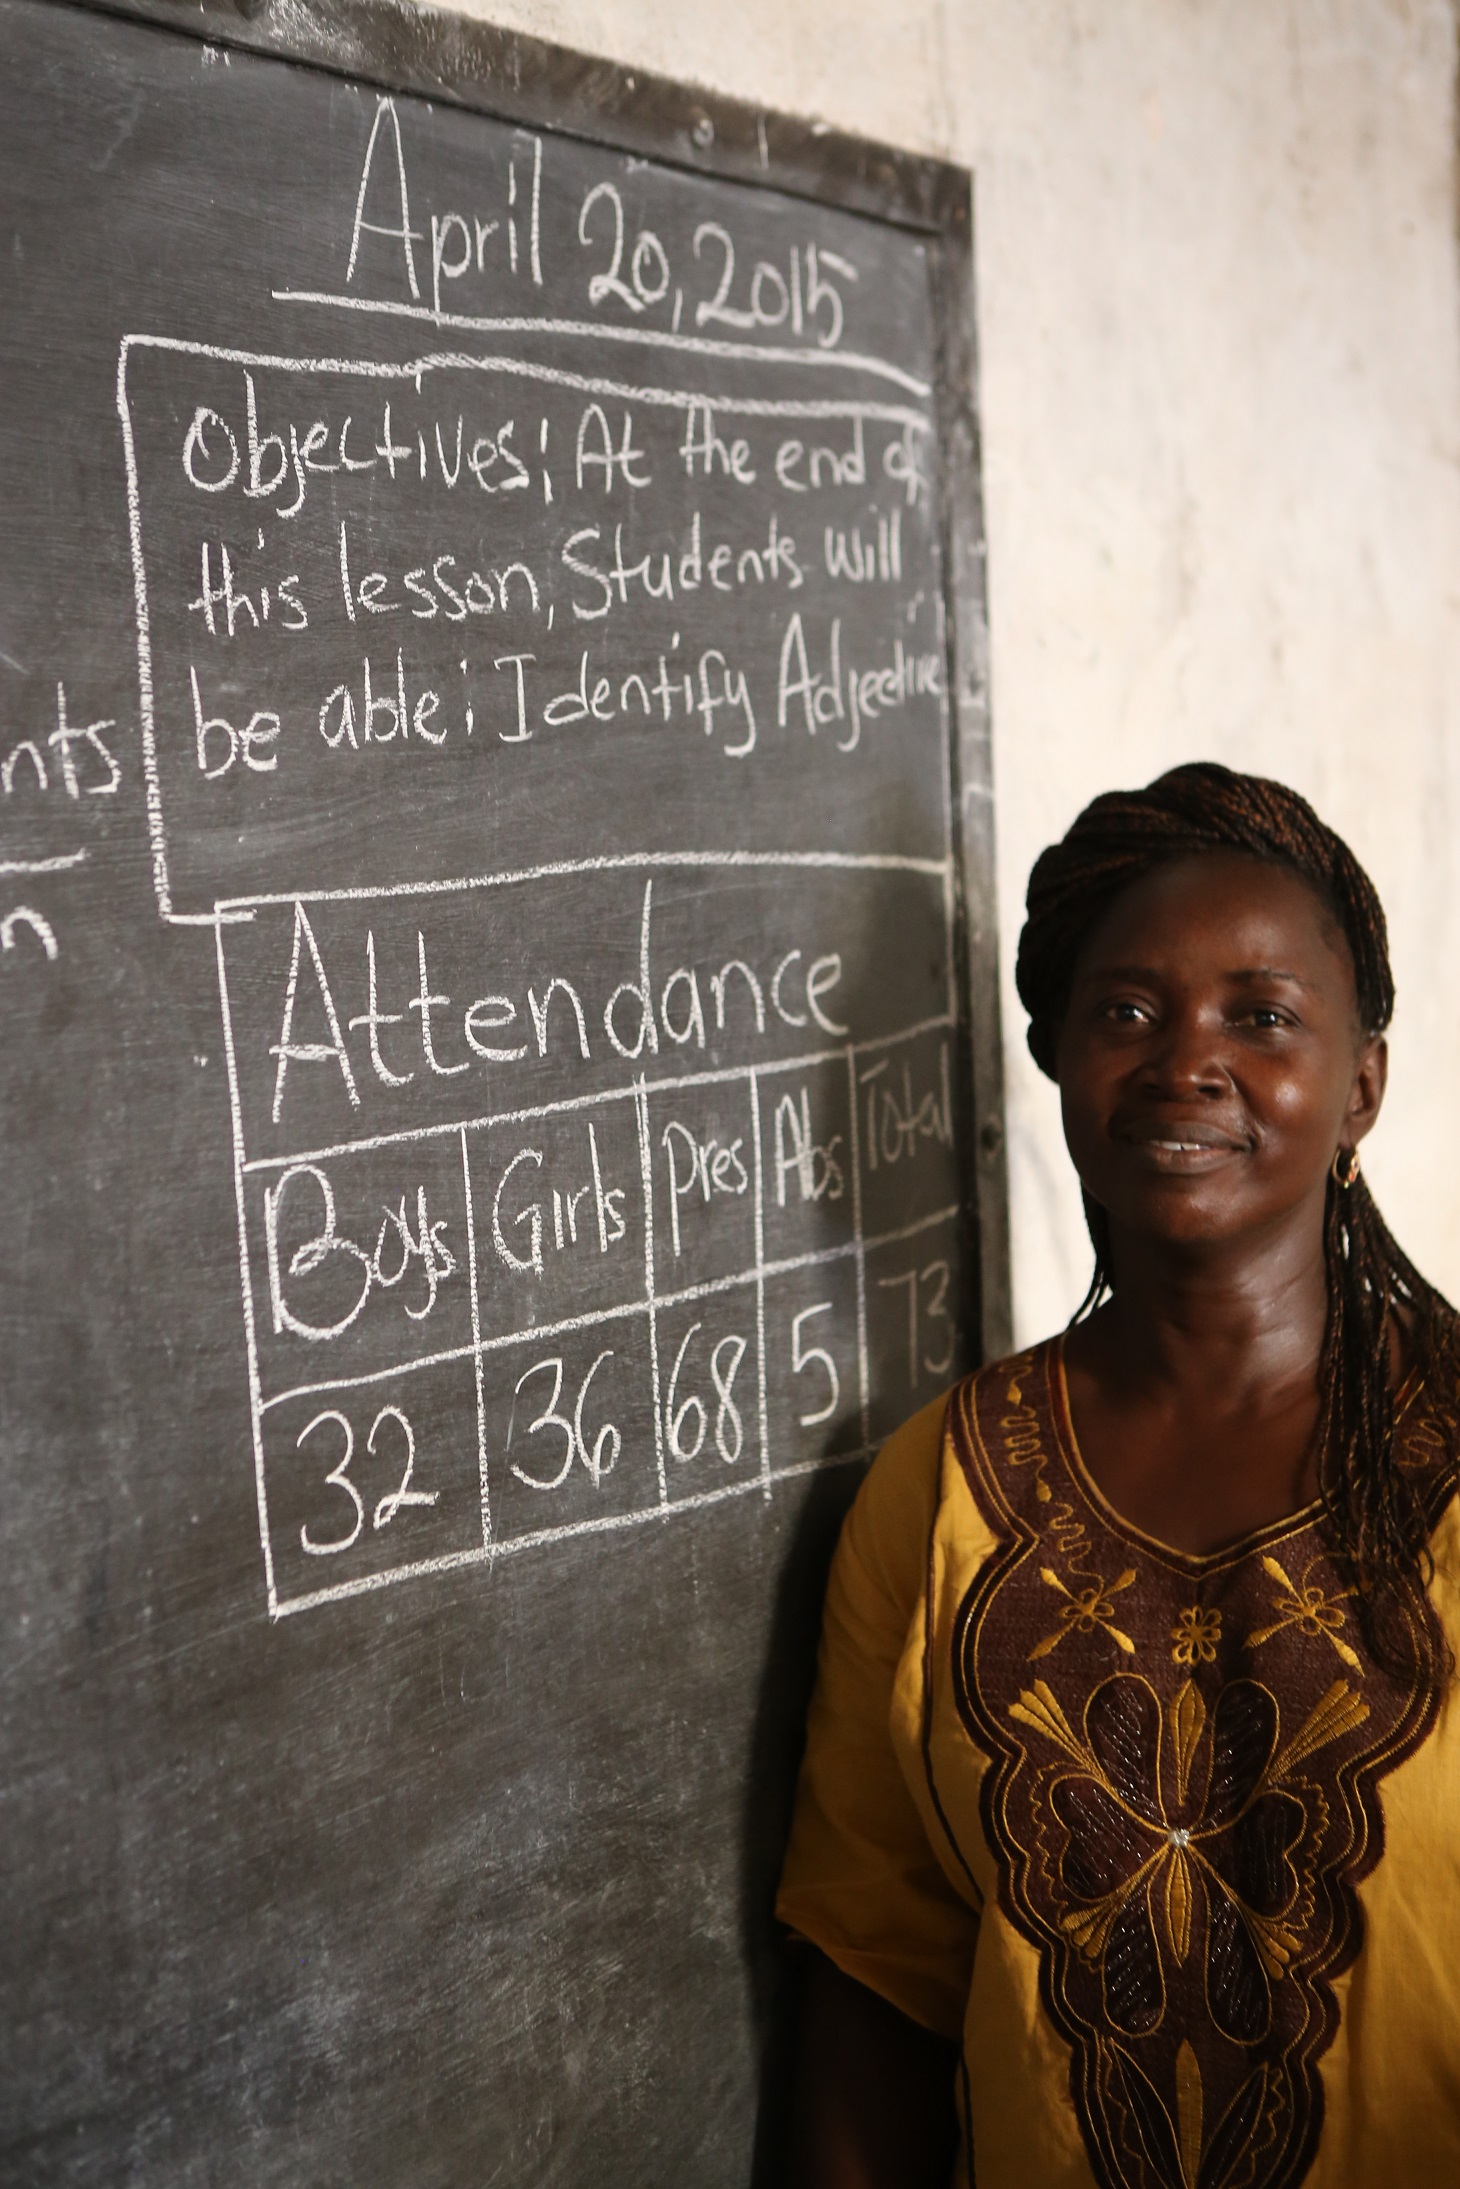 April 20, 2015
Objectives; At the end of
this lesson, Students will
be able; Identify Adjective
nts
n
Attendance
Boys Girls Pres Abs Total
32 36 68 5 73